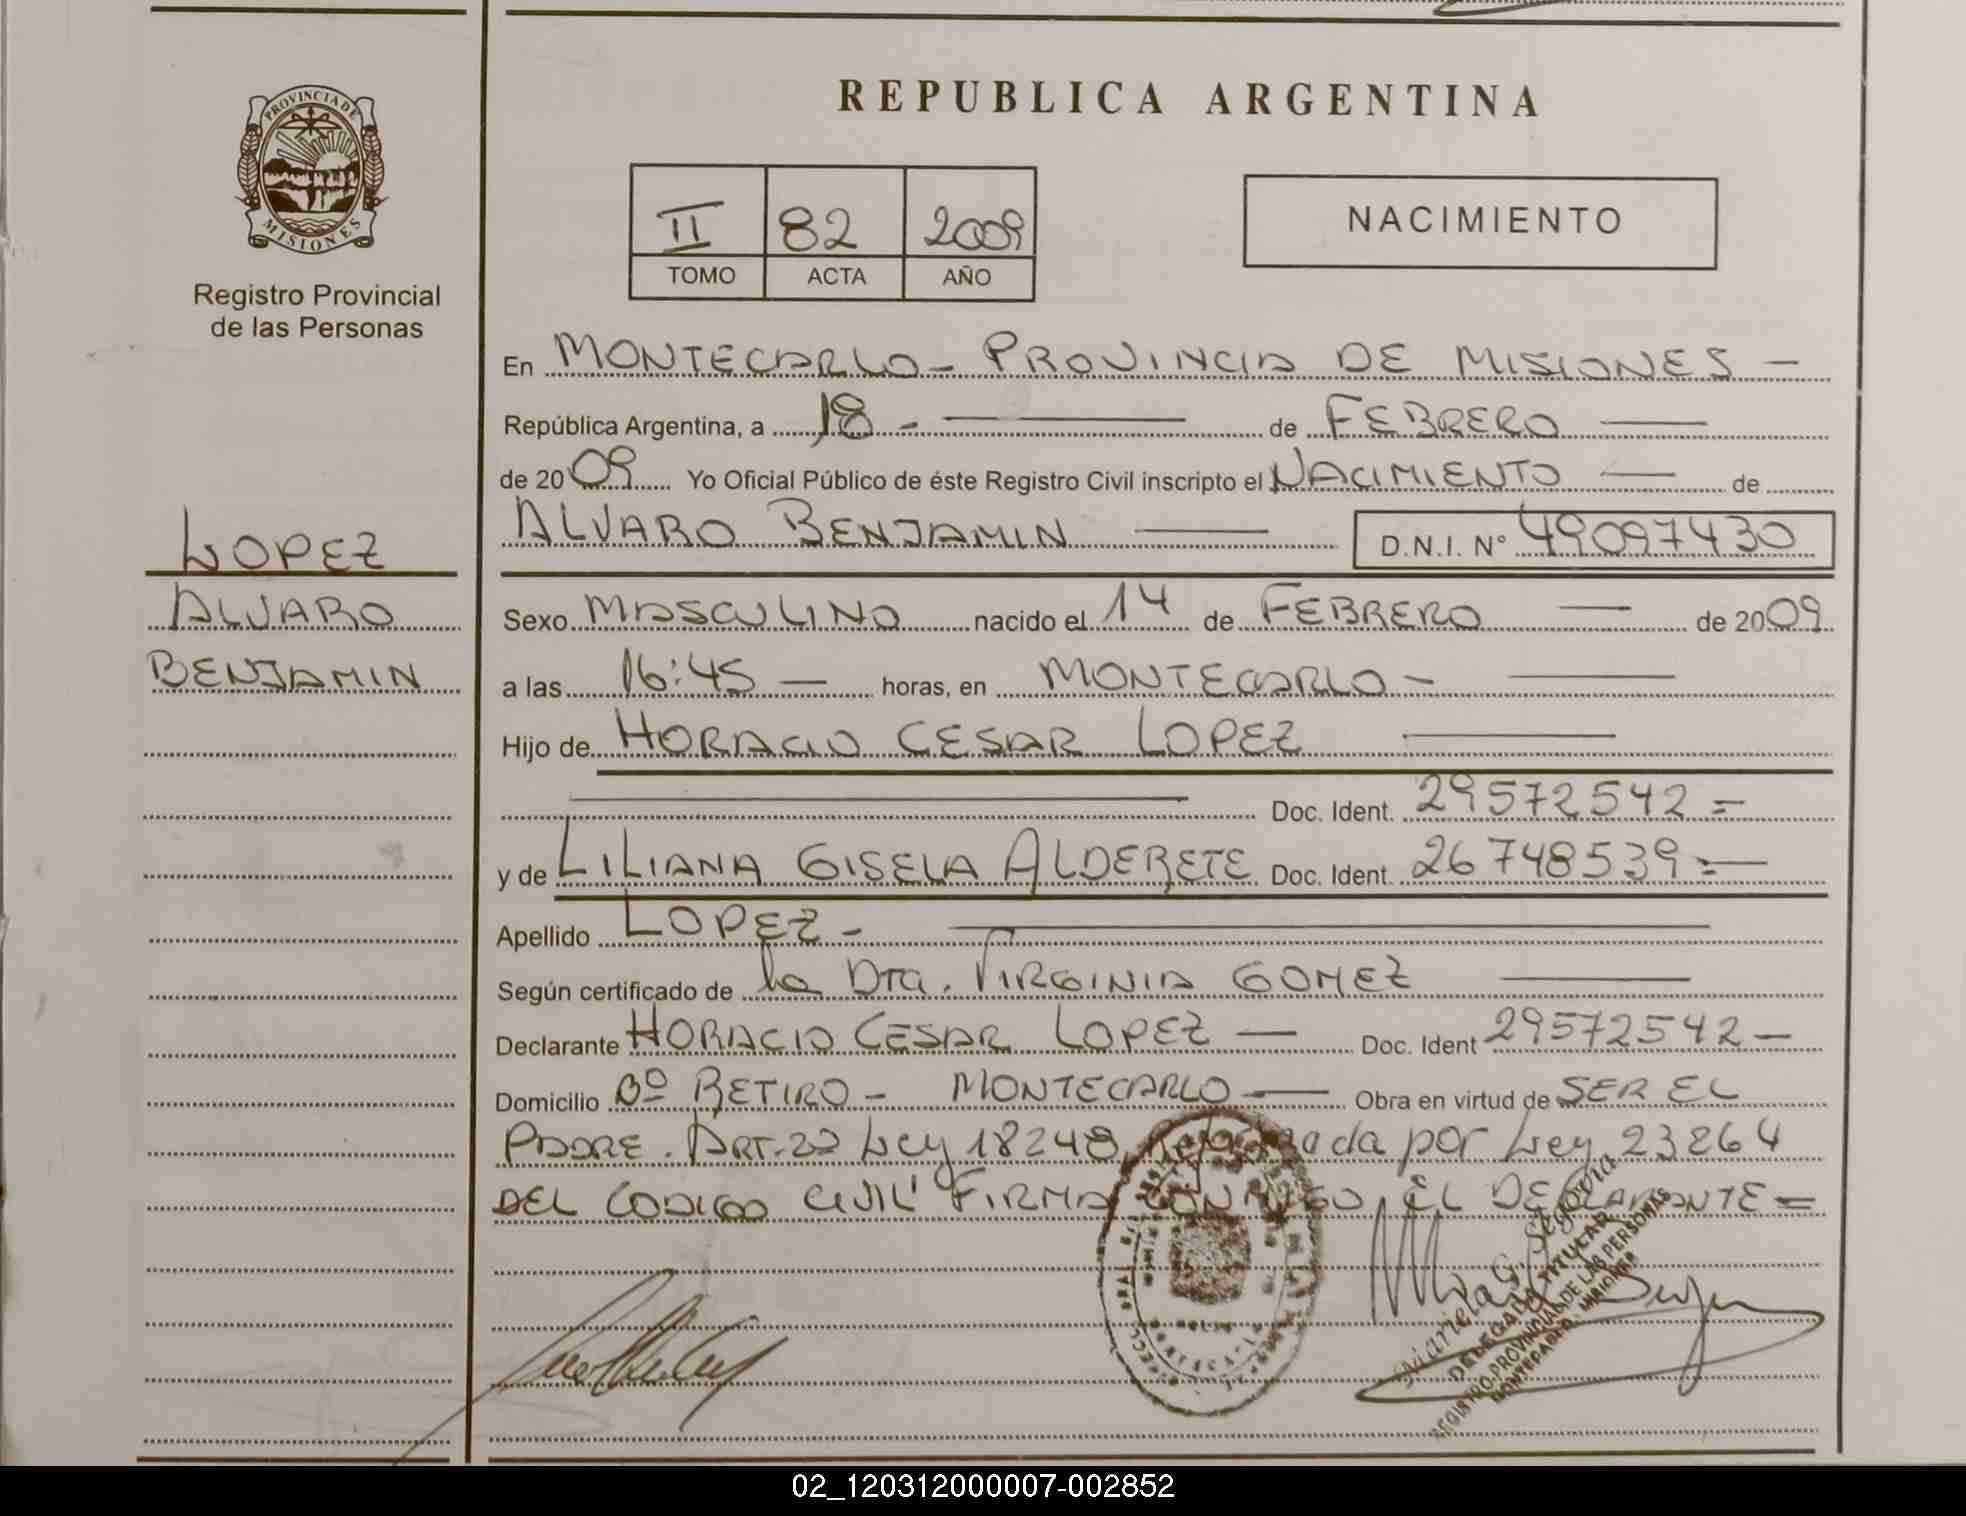 PROVINCIA DE
MISIONES
Registro Provincial
de las Personas
LOPEZ
ALVARO
BENJAMIN
REPUBLICA ARGENTINA
II 82 2009
TOMO ACTA AÑO
NACIMIENTO
En MONTECARLO - PROVINCIA DE MISIONES -
República Argentina, a 18 - de FEBRERO
de 2009 Yo Oficial Público de éste Registro Civil inscripto el NACIMIENTO de
ALVARO BENJAMIN D.N.I. N° 49097430
Sexo MASCULINO nacido el 14 de FEBRERO de 2009
a las 16:45 horas, en MONTECARLO -
Hijo de HORACIO CESAR LOPEZ
Doc. Ident. 29572542 =
y de LILIANA GISELA ALDERETE Doc. Ident. 26748539 =
Apellido LOPEZ -
Según certificado de la Dra. VIRGINIA GOMEZ
Declarante HORACIO CESAR LOPEZ Doc. Ident 29572542 -
Domicilio Bº RETIRO - MONTECARLO Obra en virtud de SER EL
PADRE. ART. Ley 18248 por Ley 23264
DEL CODIGO CIVIL FIRMA CONMIGO EL DECLARANTE =
G. Segovia
DELEGADA TITULAR
REGISTRO PROVINCIAL DE LAS PERSONAS
MONTECARLO - MISIONES
02_120312000007-002852